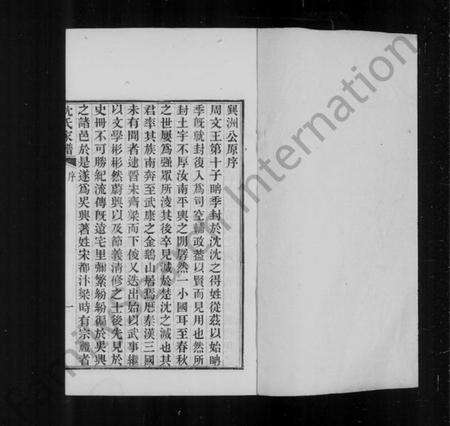 巽洲公原序
周文王第十子聃季封於沈沈之得姓從茲以始聃
季旣就封復入爲司空輔政蓋以賢而見用也然所
封土宇不厚汝南平輿之間蕞然一小國耳至春秋
之世屢爲強眾所淩其後卒見滅於楚沈之滅也其
君率其族南奔至武康之金鵝山居焉歷秦漢三國
未有聞者逮晉宋齊梁而下俊乂迭出始以武事繼
以文學彬彬然蔚興以及節義清修之士後先見於
史冊不可勝紀流傳旣遠宅里彌繁紛紛徧於吳興
之諸邑於是遂爲吳興著姓宋都汴梁時有宗禮者
沈氏家譜 序 一
Family International